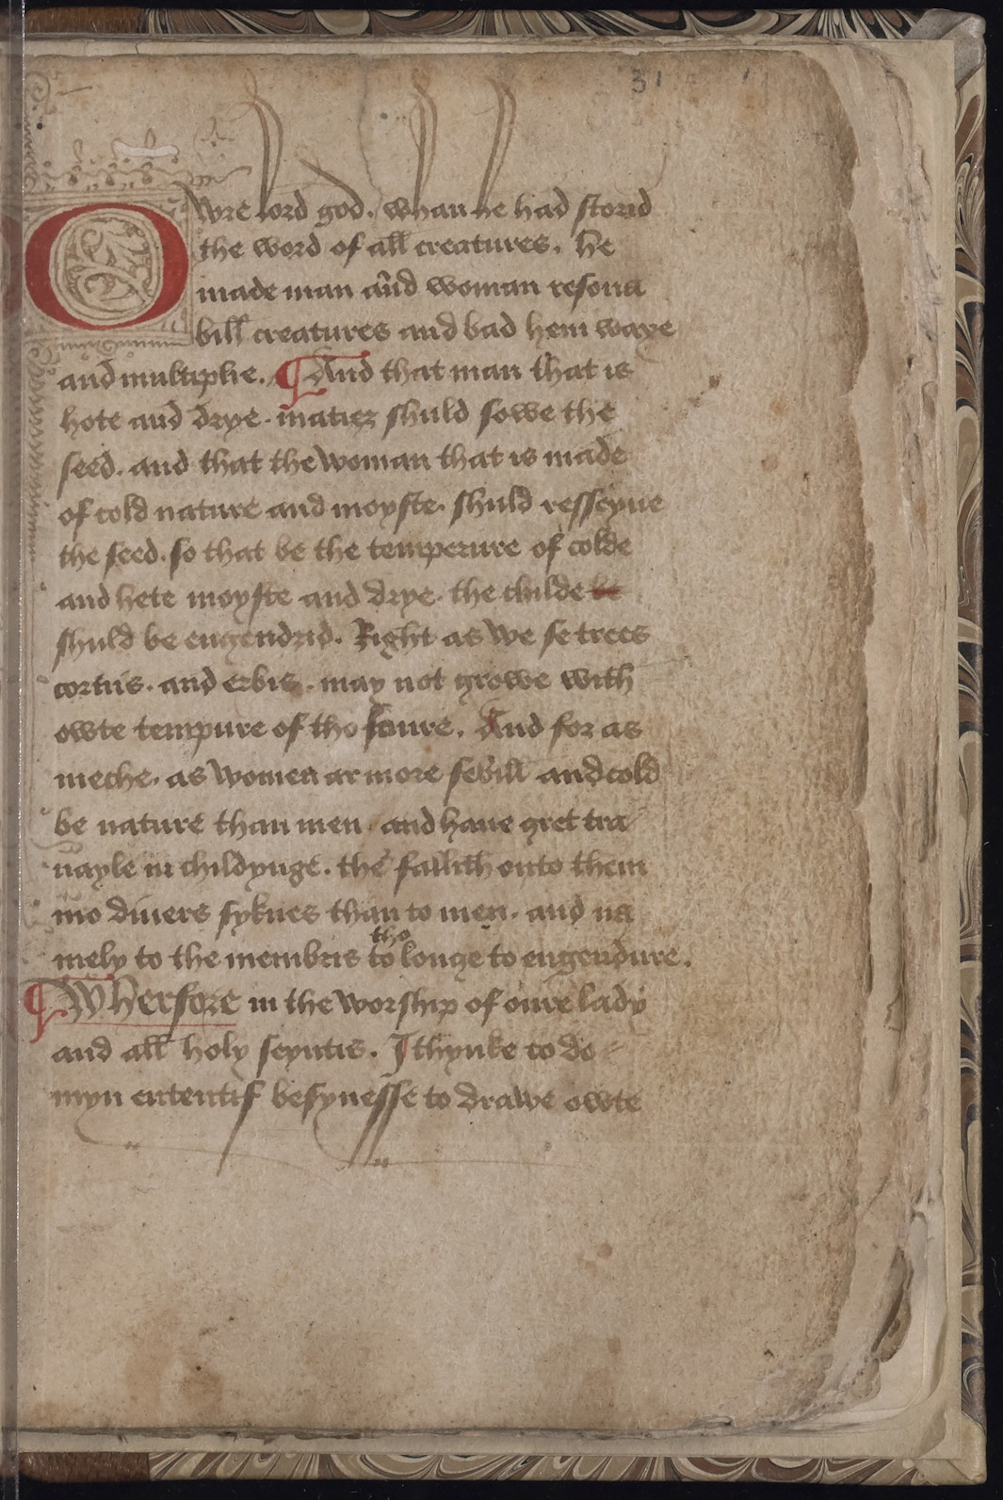 31
Owre lord god. whan he had storid
the word of all creatures. He
made man and woman resona
bill creatures and bad hem waxe
and multiplie. ¶ And that man that is
hote and drye. matier shuld sowe the
seed. and that the woman that is made
of cold nature and moyste. shuld resseyue
the seed. so that be the temperure of colde
and hete moyste and drye. the childe
shuld be engendrid. Right as we se trees
cornis. and erbis. may not growe with
owte tempure of tho foure. And for as
meche. as women ar more febill and cold
be nature than men. and haue gret tra
uayle in childynge. the fallith onto them
mo diuers syknes than to men. and na
mely to the membris tho to longe to engendure.
¶ Wherfore in the worship of oure lady
and all holy seyntis. I thynke to do
myn ententif besynesse to drawe owte